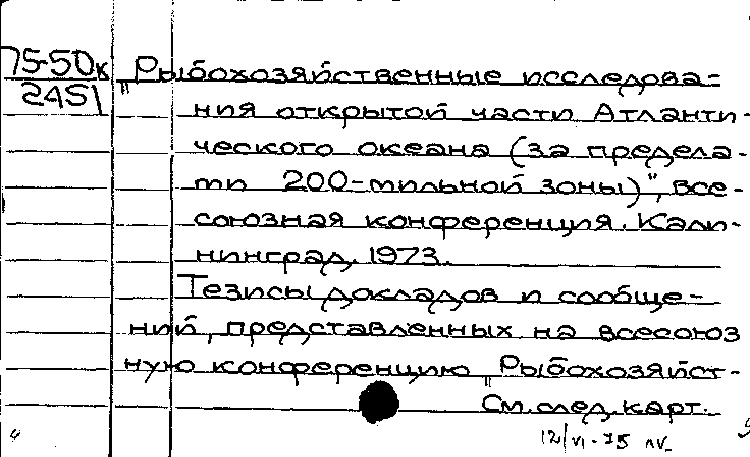 75-50к
2451
"Рыбохозяйственные исследова=
ния открытой части Атланти-
ческого океана (за предела-
ми 200-мильной зоны)", Все-
союзная конференция. Кали-
нинград, 1973.
Тезисы докладов и сообще-
ний, представленных на всесоюз
ную конференцию "Рыбохозяйст-
См. след. карт.
12/VI-75